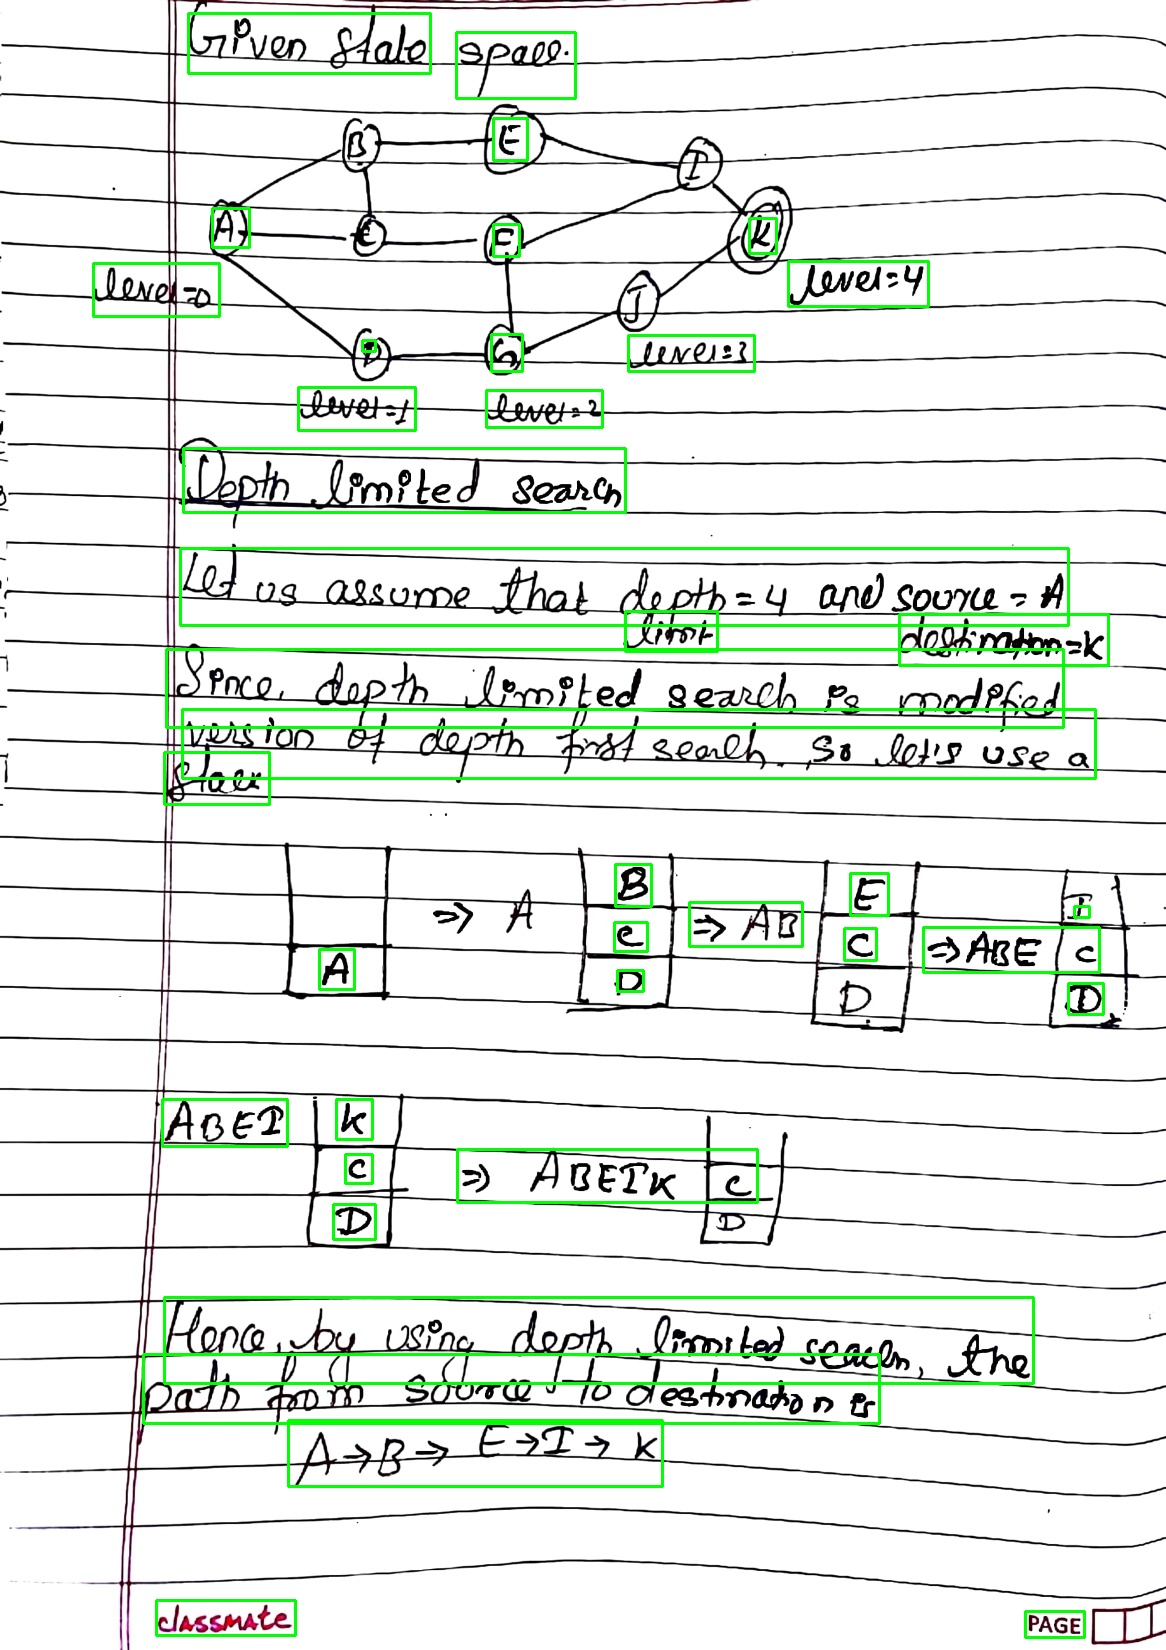 Given state space.
B E I
A C F K
level=0 level=4
J
D G level=3
level=1 level=2
Depth limited search
Let us assume that depth = 4 and source = A
limit destination=k
Since, depth limited search is modified
version of depth first search. So let's use a
stack
A ⇒ A B C D ⇒ AB E C D ⇒ABE I C D
ABEI k C D ⇒ ABEIK C D
Hence, by using depth limited search, the
path from source to destination is
A → B → E → I → K
classmate
PAGE